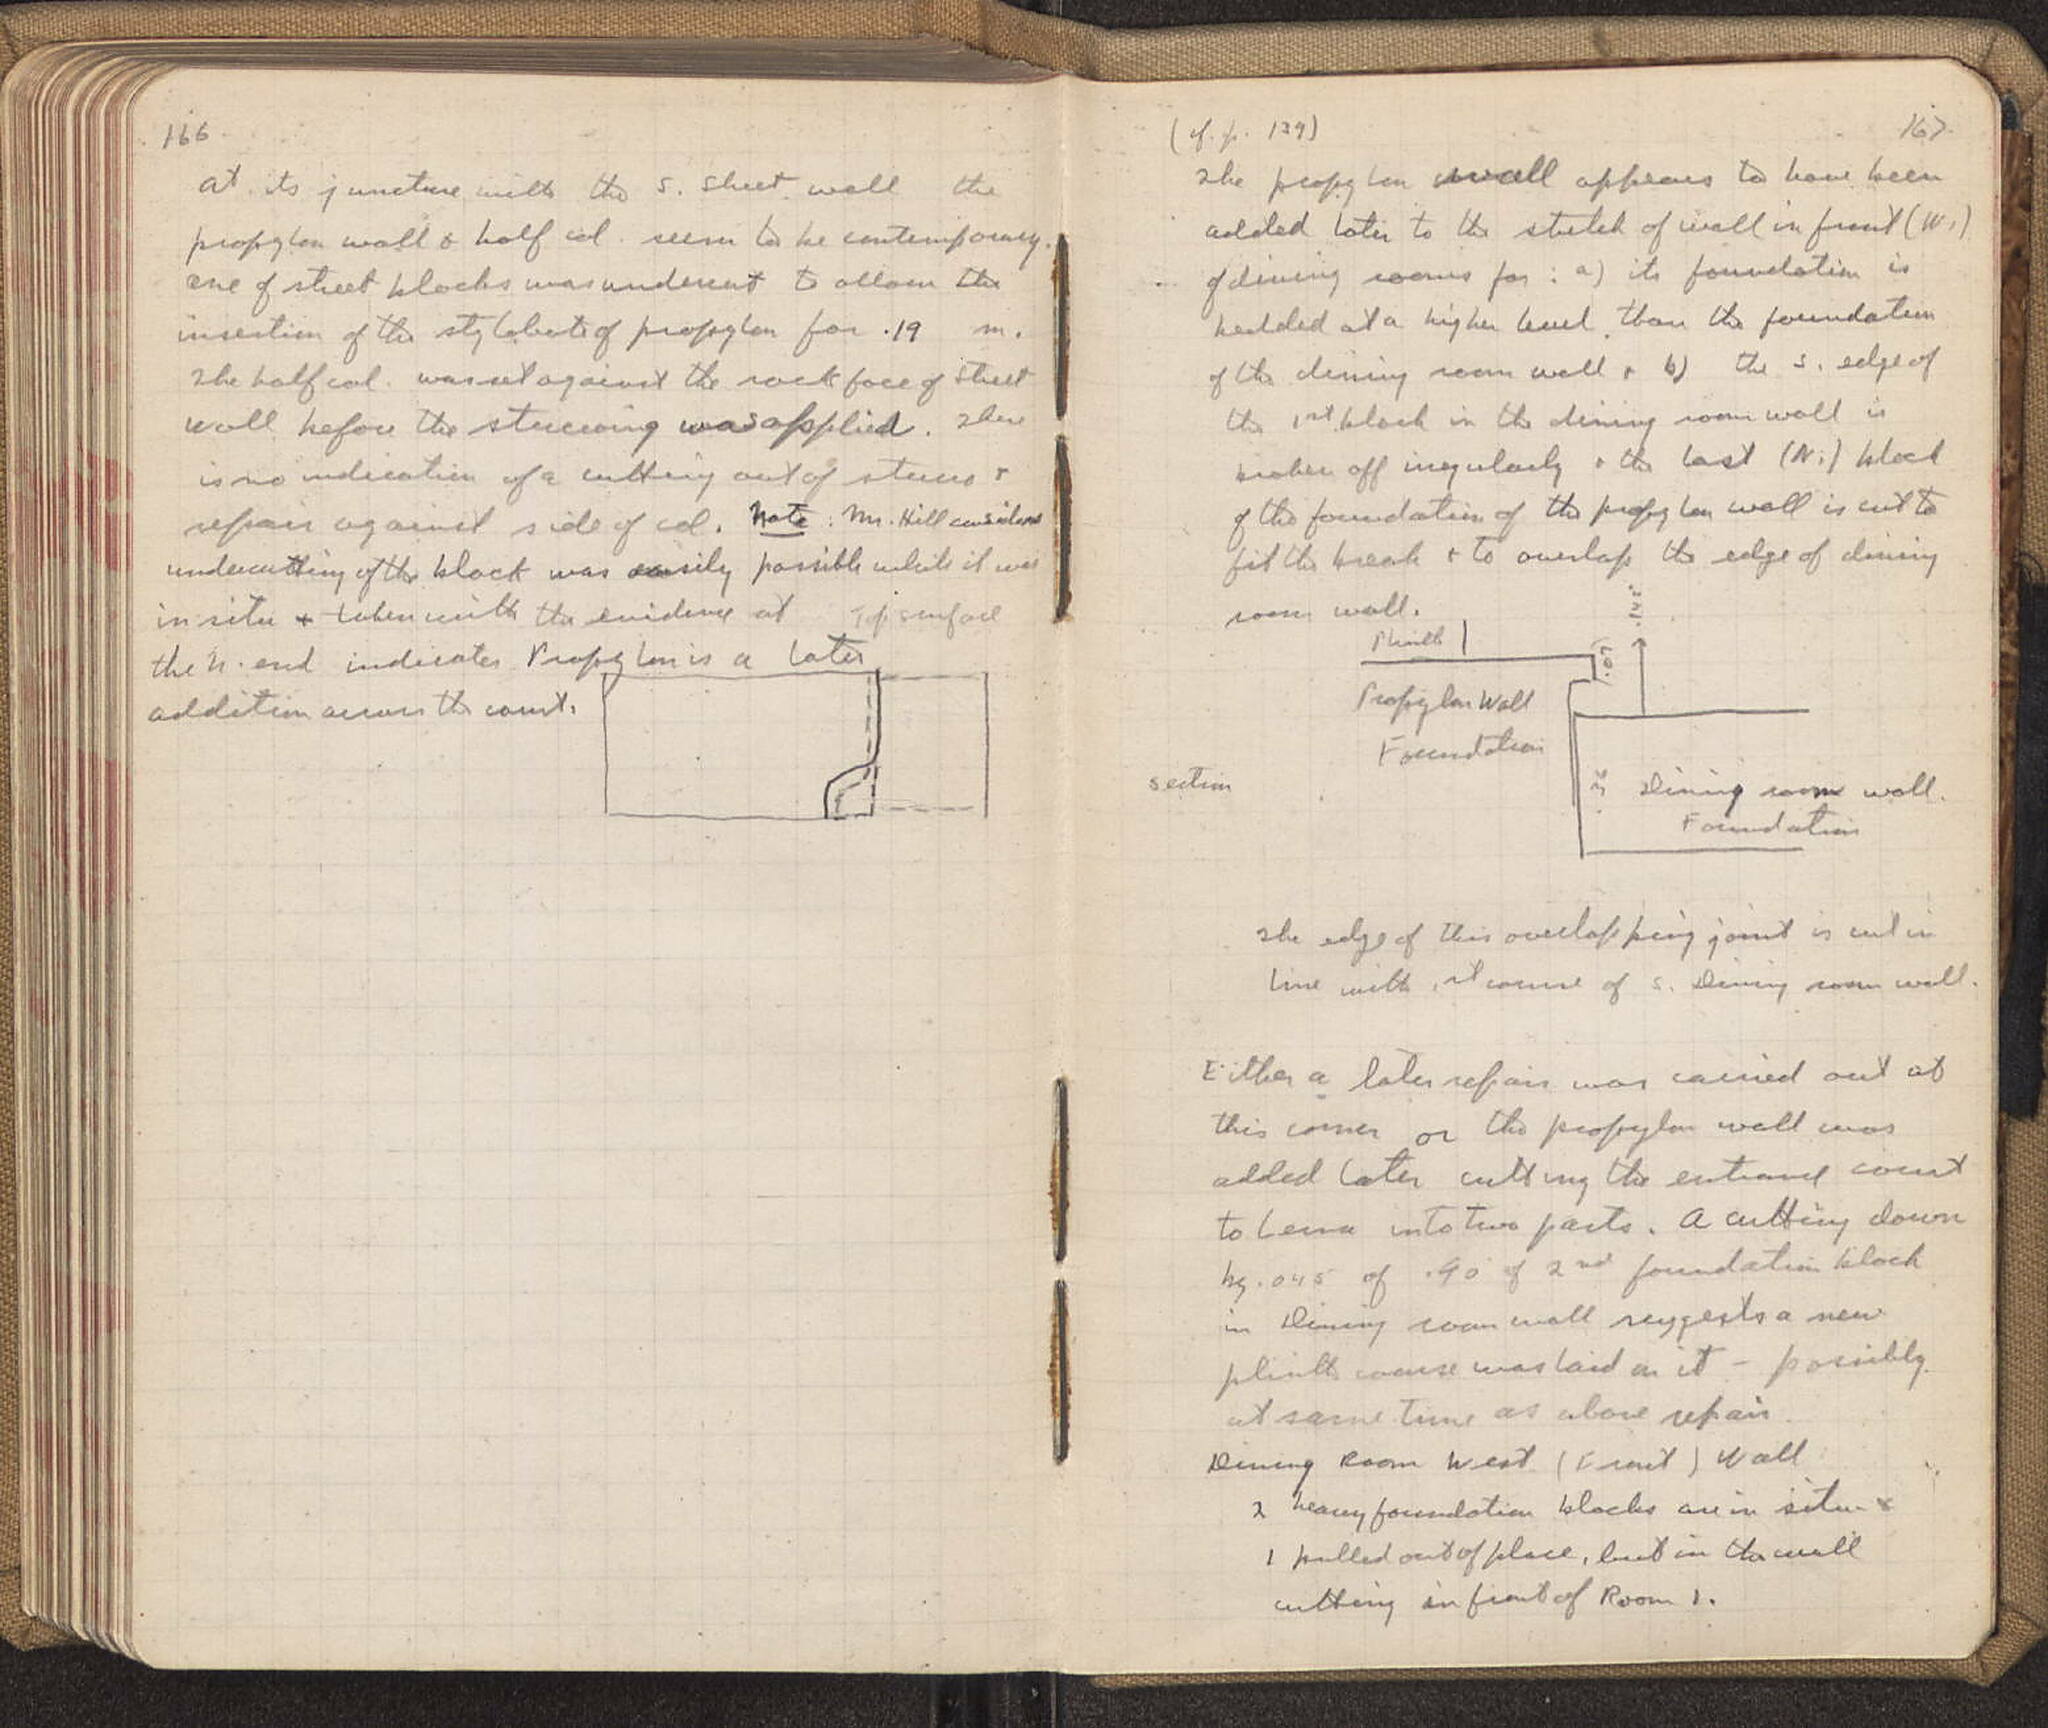 166
At its juncture with the S. Street wall the
propylon wall & half col. seem to be contemporary.
One of street blocks was undercut to allow the
insertion of the stylobate of propylon for .19 m.
The half col. was set against the rock face of street
wall before the stuccoing was applied. There
is no indication of a cutting out of stucco +
repair against side of col. Note: Mr. Hill considered
undercutting of the block was easily possible while it was
in situ + taken with the evidence at
Top surface
the N. end indicates Propylon is a later
addition across the court.
(cf. p. 139)
167
The propylon wall appears to have been
added later to the stretch of wall in front (W.)
of dining rooms for: a) its foundation is
bedded at a higher level than the foundation
of the dining room wall + b) the S. edge of
the 1st block in the dining room wall is
broken off irregularly + the last (N.) block
of the foundation of the propylon wall is cut to
fit the break + to overlap the edge of dining
room wall.
.145
Plinth
.07
Propylon Wall
Foundation
section
Dining room wall.
Foundation
The edge of this overlapping joint is cut in
line with 1st course of S. Dining room wall.
Either a later repair was carried out at
this corner or the propylon wall was
added later cutting the entrance court
to Lerna into two parts. A cutting down
by .045 of .90 of 2nd foundation block
in Dining room wall suggests a new
plinth course was laid on it – possibly
at same time as above repair.
Dining Room West (Front) Wall
2 heavy foundation blocks are in situ &
1 pulled out of place, but in the wall
cutting in front of Room 1.